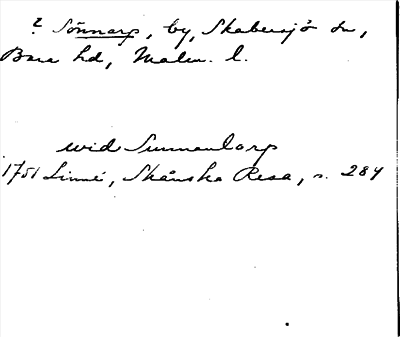 ? Sönnarp, by, Skabersjö sn,
Bara hd, Malm. l.
wid Sunnantorp
1751 Linné, Skånska Resa, s. 284